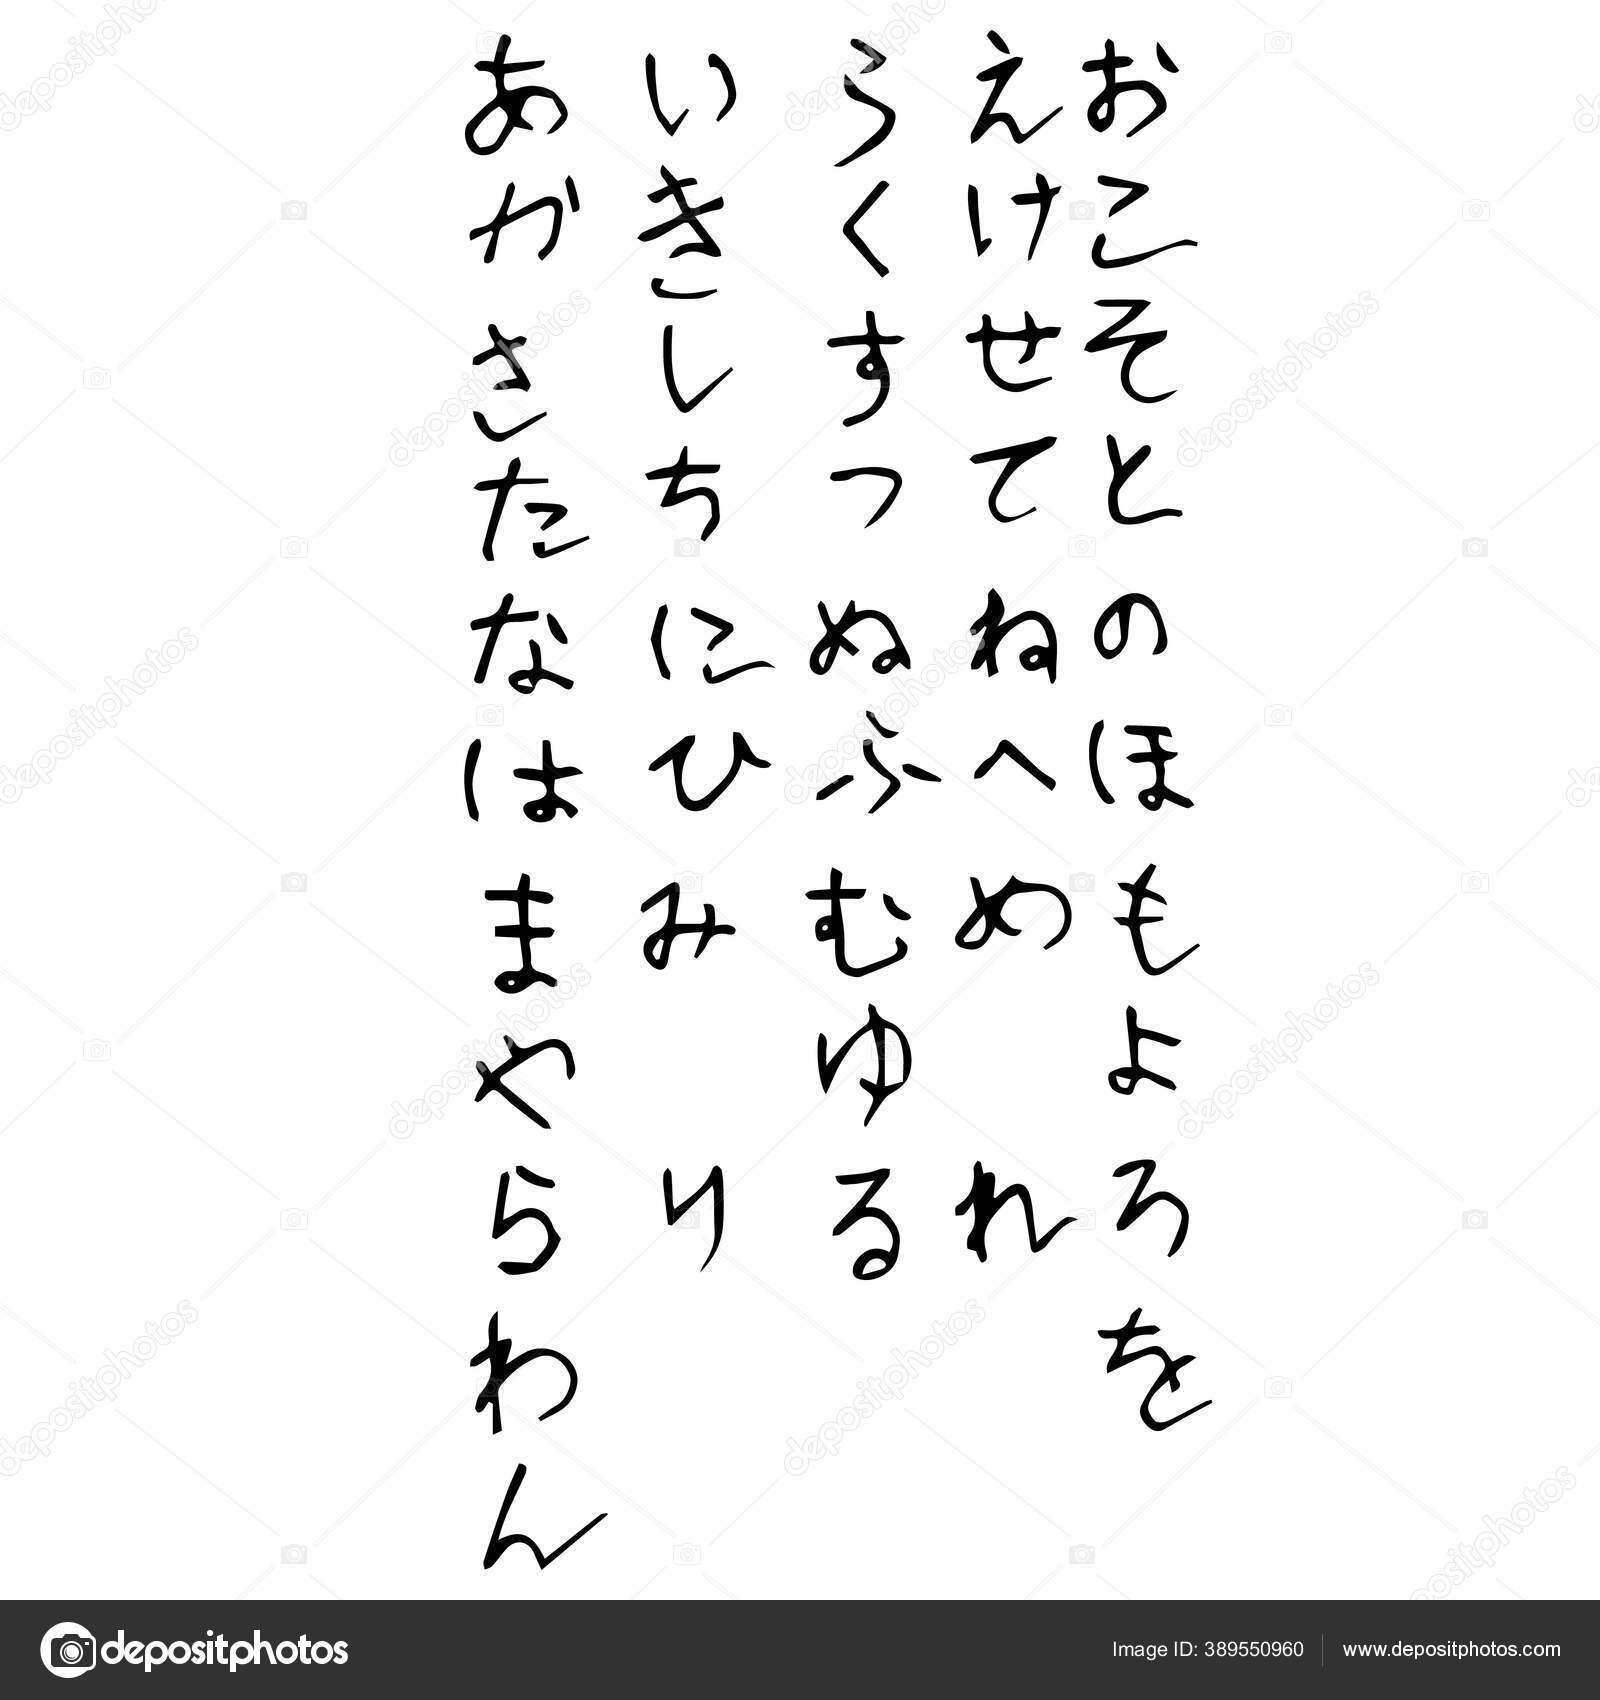 あいうえお
かきくけこ
さしすせそ
たちつてと
なにぬねの
はひふへほ
まみむめも
やゆよ
らりるれろ
わを
ん
depositphotos
Image ID: 389550960 www.depositphotos.com